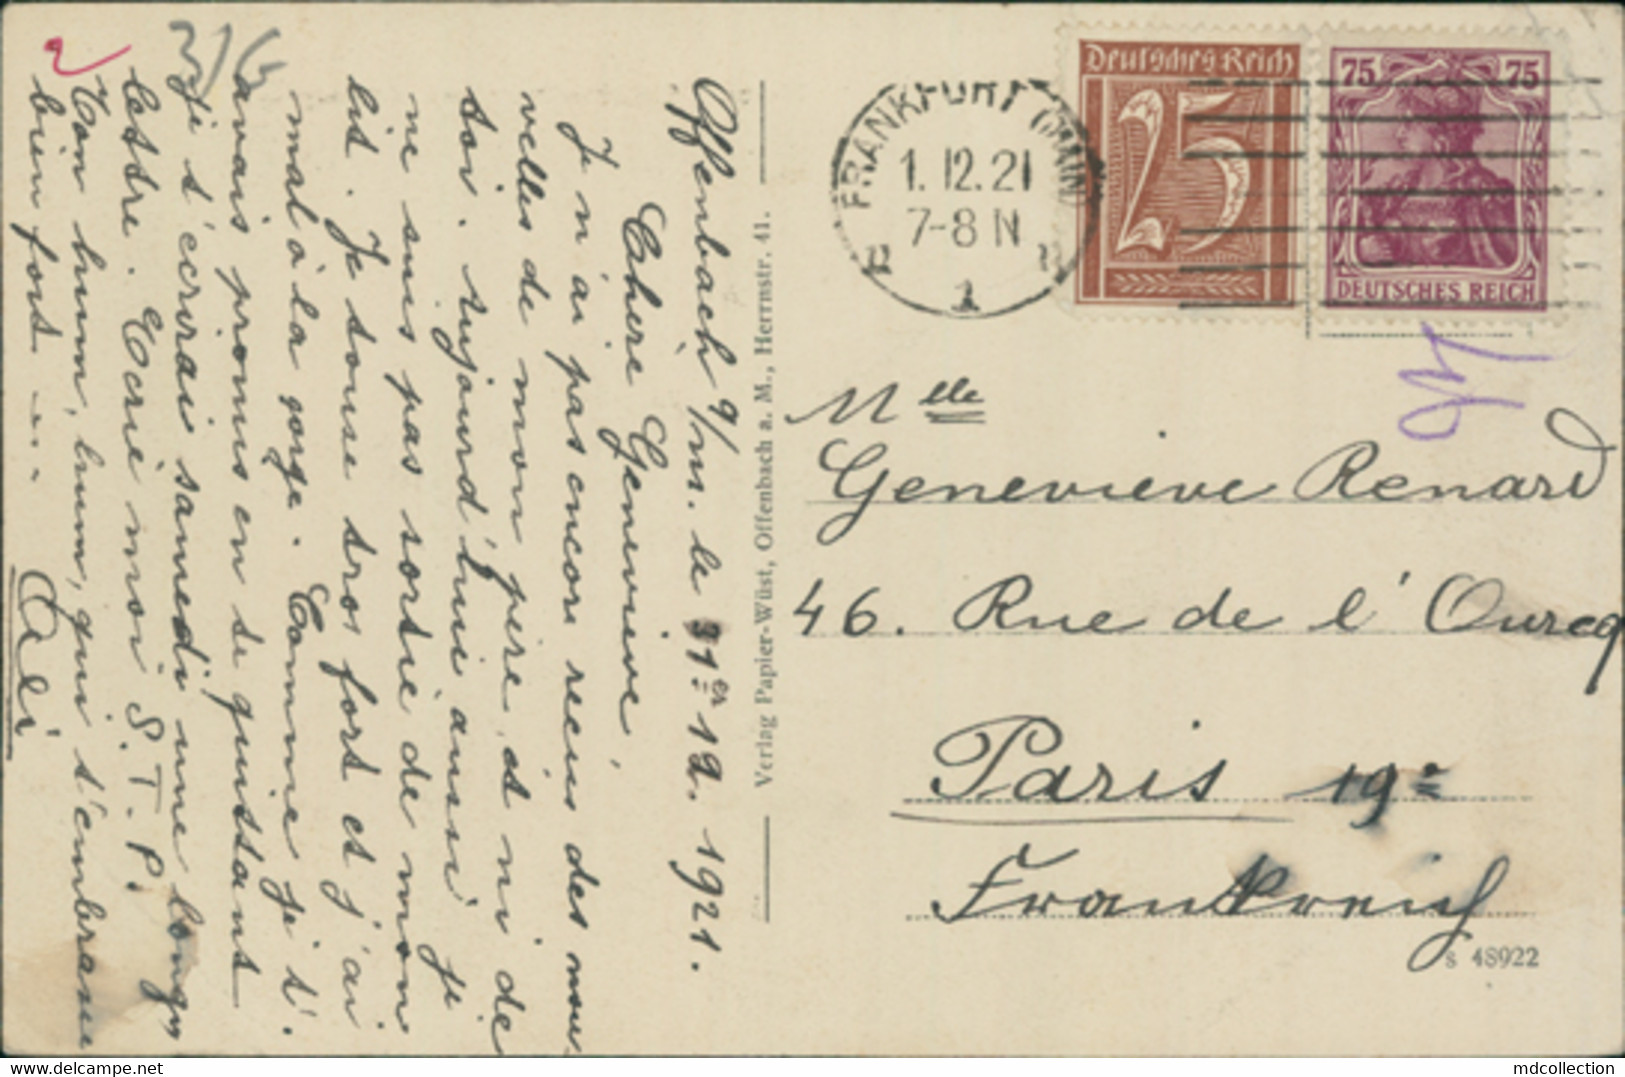 Offenbach a/m. le 1er 12. 1921.
Chère Geneviève,
Je n'ai pas encore recus des nou-
velles de mon père, et ni de
toi. Aujourd'hui aussi je
ne suis pas sortie de mon
lit. Je tousse trop fort et j'ai
mal à la gorge. Comme je t'
avais promis en te quittant
je t'écrirai samedi une longue
lettre. Ecrie moi S.T.P.
Ton hum, hum, qui t'embrasse
bien fort ...
Verlag Papier-Wüst, Offenbach a. M., Herrnstr. 41.
FRANKFURT (MAIN)
1.12.21
7-8 N
1
Deutsches Reich
25
75 75
DEUTSCHES REICH
Mlle
Geneviève Renard
46. Rue de l'Ourcq
Paris 19e
Frankreich
S 48922
delcampe.net
mdcollection